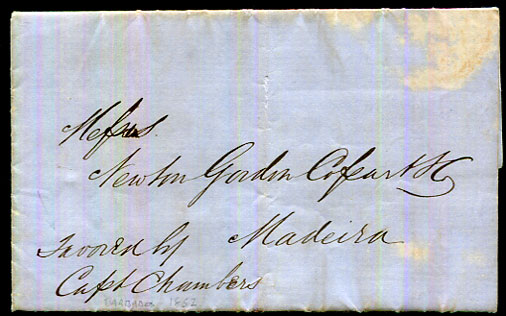 Messrs.
Newton Gordon Cossart & Co
Madeira
Favored by
Capt Chambers
BARBADOS 1862